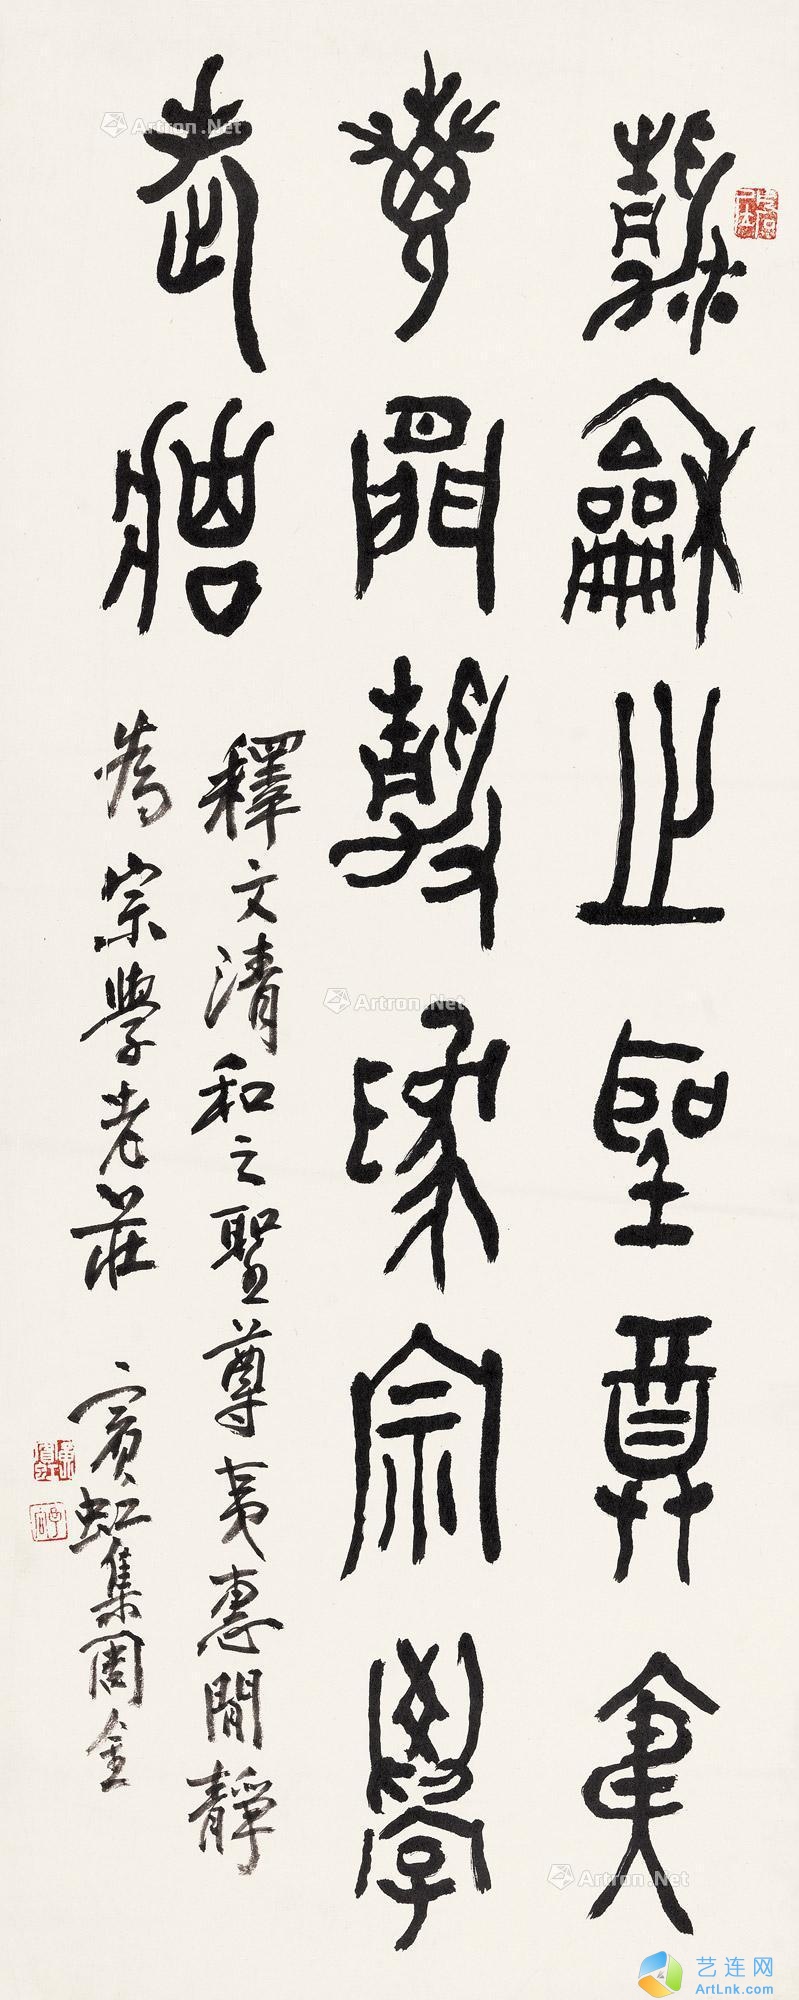 清龢之聖尊夷
惠閒靜為宗學
老莊
釋文清和之聖尊夷惠閒靜
為宗學老莊 賓虹集周金
Artron.Net
Artron.Net
Artron.Net
艺连网
ArtLnk.com